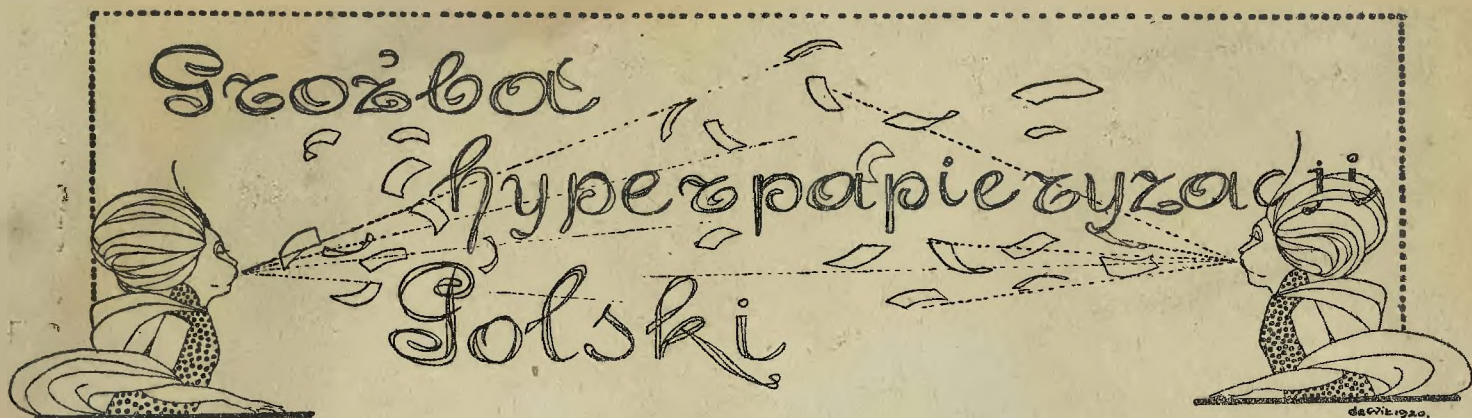 Groźba
hyperpapieryzacji
Polski
1920.